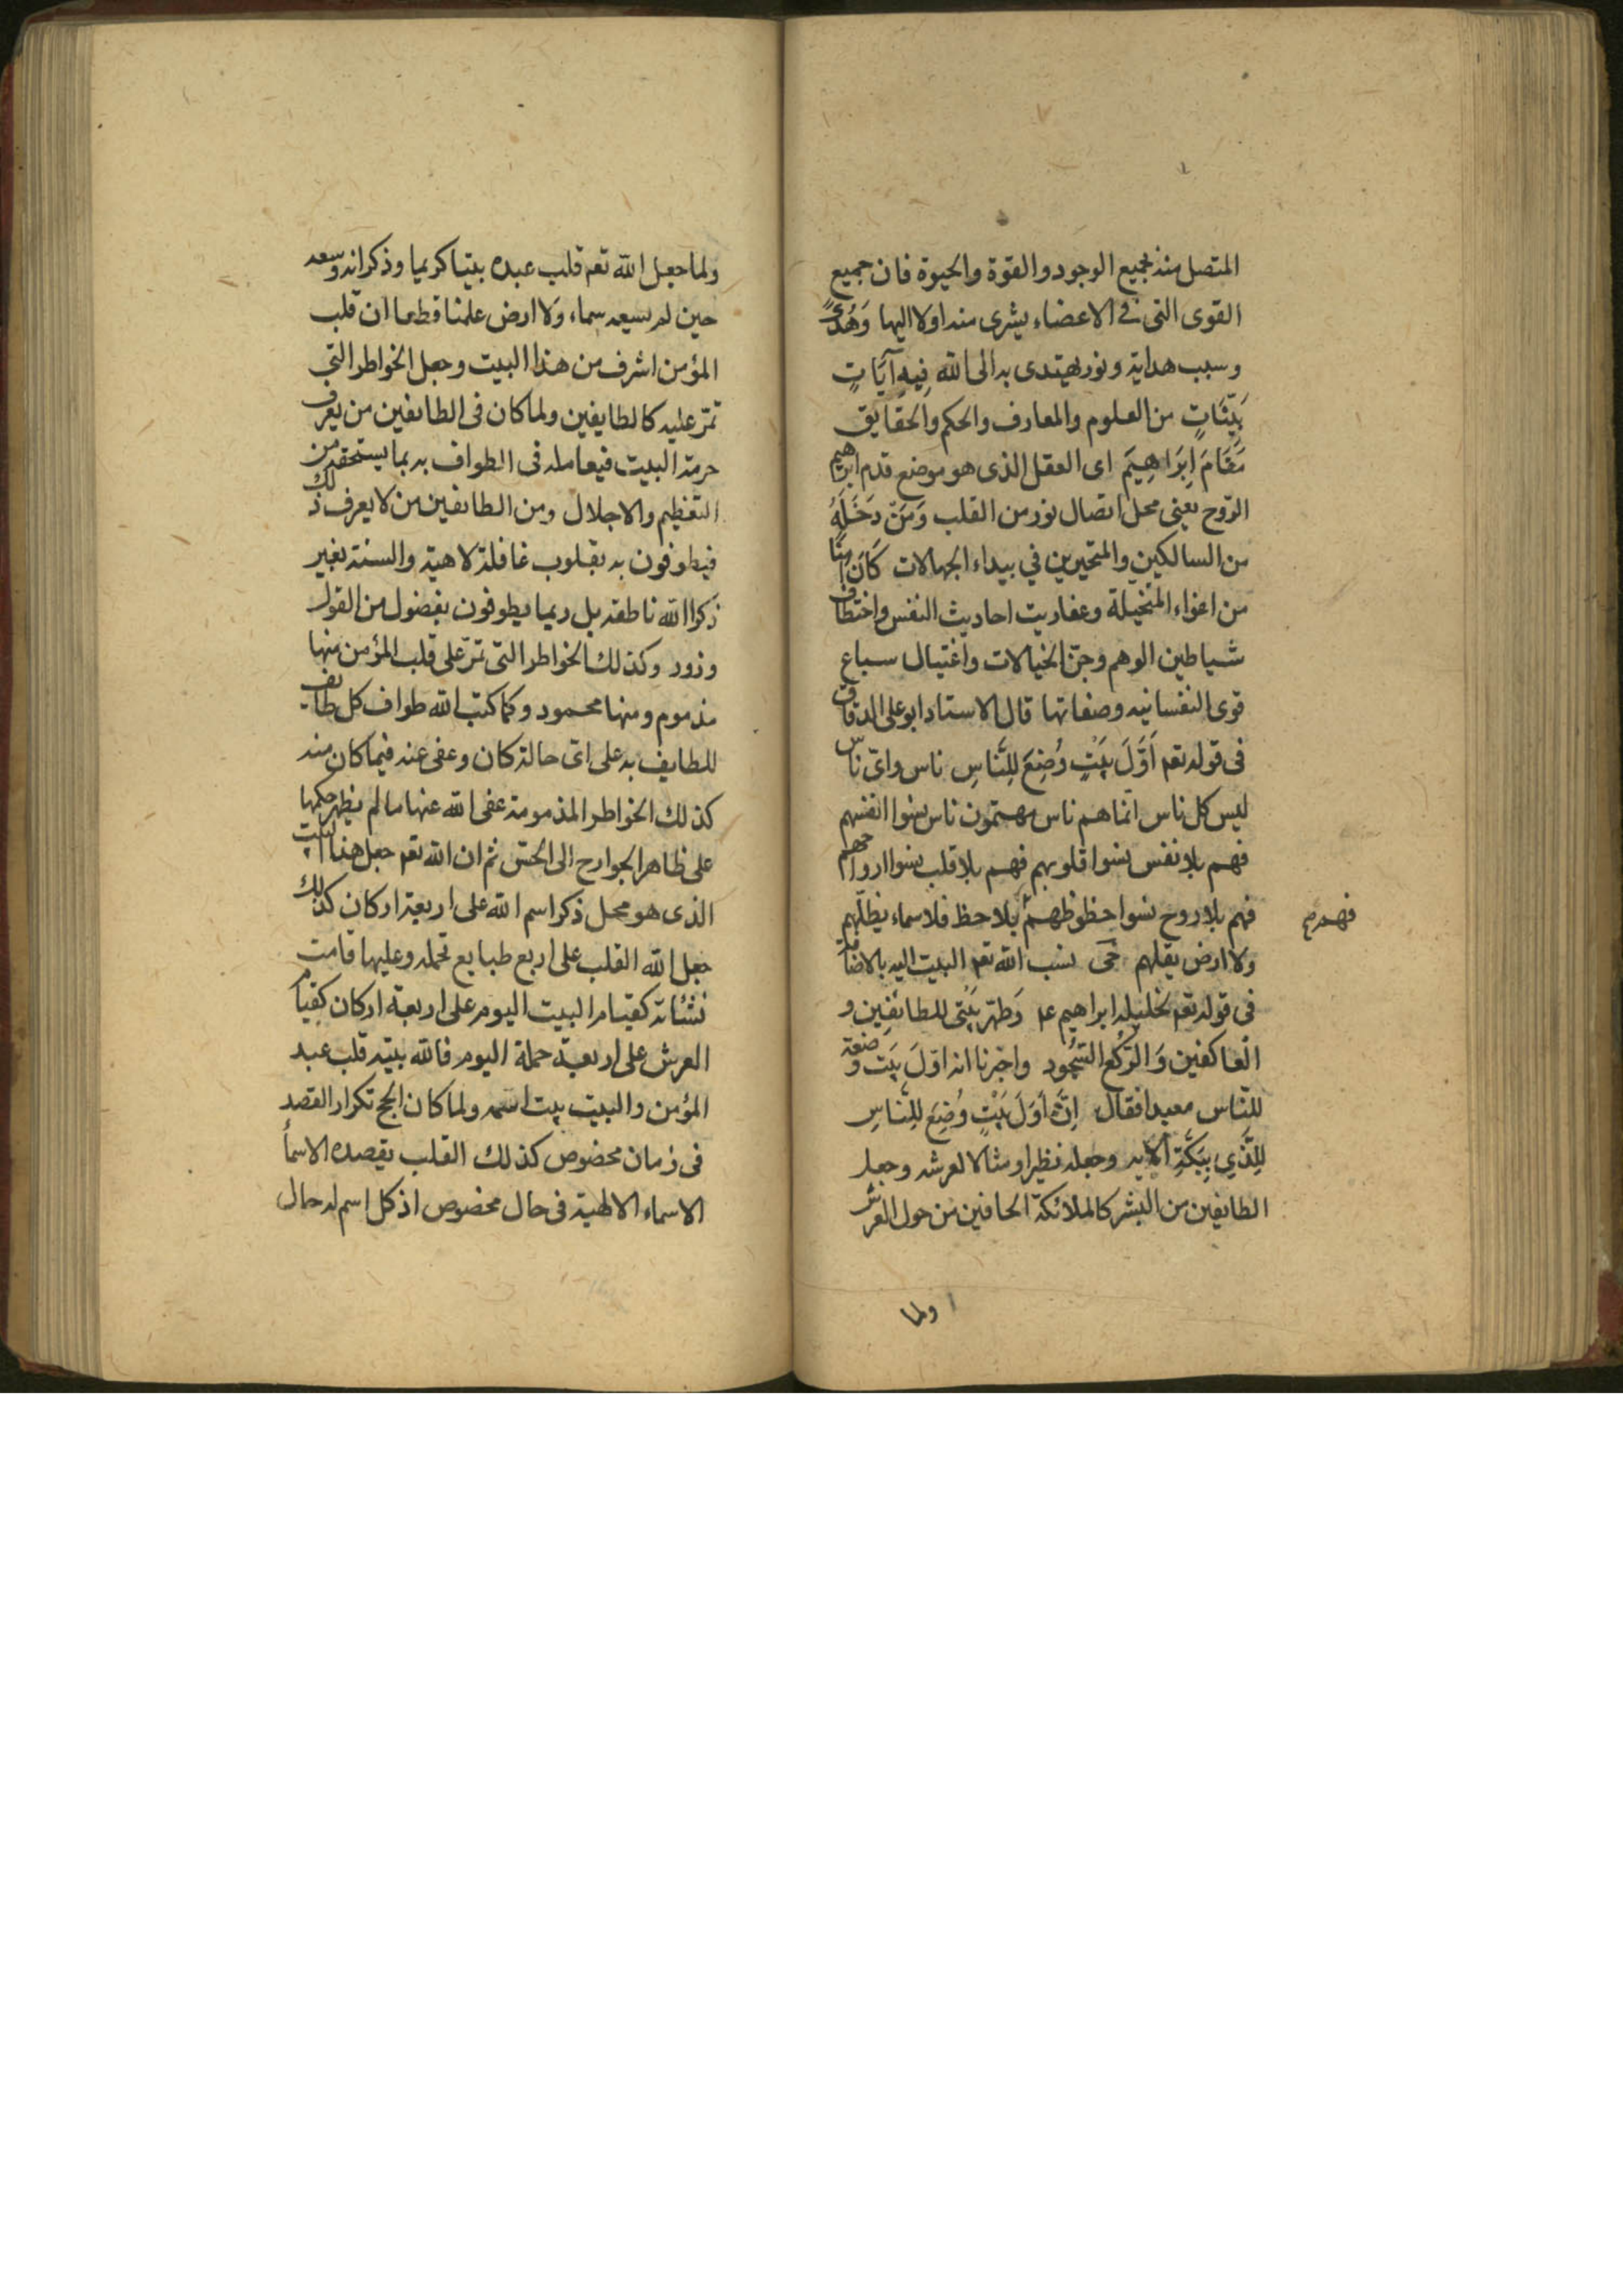 المتصل منه بجميع الوجود والقوة والحيوة فان جميع
القوى التى فى الاعضاء يسرى منه اولا اليها وَهُدًى
وسبب هداية ونور يهتدى به الى الله فِيهِ آيَاتٍ
بَيِّنَاتٍ من العلوم والمعارف والحكم والحقايق
مَقَامَ اِبْرَاهِيمَ اى العقل الذى هو موضع قدم ابراهيم
الرّوح يعنى محل اتصال نوره من القلب وَمَنْ دَخَلَهُ
من السالكين والمتحيرين في بيداء الجهالات كَانَ اٰمِنًا
من اغواء المتخيلة وعفاريت احاديث النفس واختطاف
شياطين الوهم وجنّ الخيالات واغتيال سباع
قوى النفسانيه وصفاتها قال الاستاد ابو على الدقاق
فى قوله تعم اَوَّلَ بَيْتٍ وُضِعَ لِلنَّاسِ ناس واىّ ناس
ليس كل ناس انما هم ناس مهتمون ناس نسوا انفسهم
فهم بلا نفس نسوا قلوبهم فهم بلا قلب نسوا ارواحهم
فهم بلا روح نسوا حظوظهم بلا حظ فلا سماء يظلّهم
فهم صح
ولا ارض يقلهم نسب الله تعم البيت اليه بالاضافة
فى قوله تعم لخليله ابراهيم عم وَطَهِّر بَيْتى للطائفين و
العاكفين وَالرّكّع السّجود واخبرنا انه اوّلَ بَيت وضعه
للنّاس معبدا فقال اِنَّ أَوَّلَ بَيْتٍ وُضِعَ لِلنَّاسِ
لِلَّذِي بِبَكَّةَ الايه وجعله نظيرا ومثالا لعرشه وجعل
الطايفين من البشر كالملائكة الحافين من حول العرش
ولما
ولما جعل الله تعم قلب عبده بيتا كريما وذكر انه وسعه
حين لم يسعه سماء ولا ارض علمنا قطعا ان قلب
المؤمن اشرف من هذا البيت وجعل الخواطر التي
تمرّ عليه كالطايفين ولما كان فى الطائفين من يعرف
حرمة البيت فيعامله فى الطواف به بما يستحقه من
التعظيم والاجلال ومن الطائفين من لا يعرف ذلك
فيطوفون به بقلوب غافلة لاهية والسنة بغير
ذكر الله ناطقه بل ربما يطوفون بفضول من القول
وزور وكذلك الخواطر التى تمرّ على قلب المؤمن منها
مذموم ومنها محمود وكما كتب الله طواف كل طائف
للطايف به على اى حالة كان وعفى عنه فيما كان منه
كذلك الخواطر المذمومة عفى الله عنها ما لم يظهر حكمها
على ظاهر الجوارح الى الحسّ ثم ان الله تعم جعل هذا البيت
الذى هو محل ذكر اسم الله على اربعة اركان كذلك
جعل الله القلب على اربع طبايع تحمله وعليها قامت
نشئاته كقيام البيت اليوم على اربعة اركان كقيام
العرش على اربعة حملة اليوم فالله بيته قلب عبد
المؤمن والبيت بيت اسمه ولما كان الحج تكرار القصد
فى زمان مخصوص كذلك القلب يقصده الاسماء
الاسماء الالهية فى حال مخصوص اذ كل اسم له حال